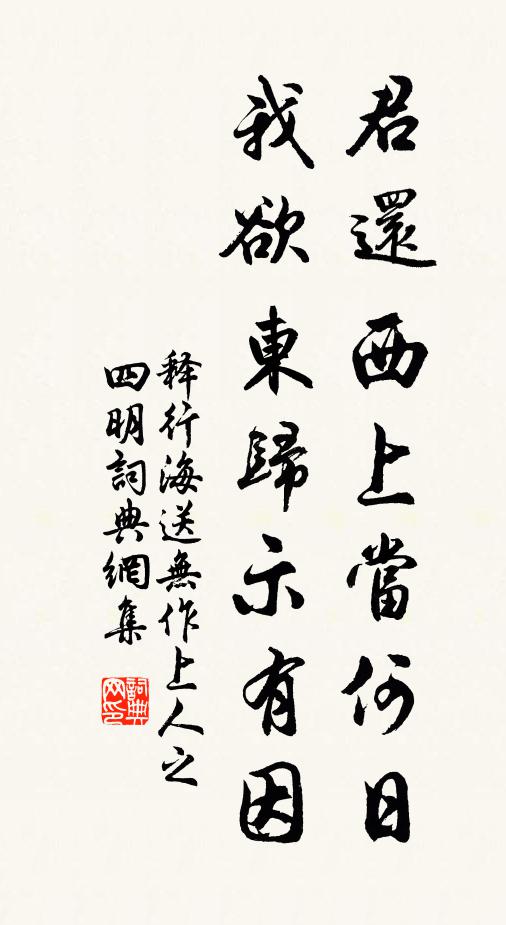 君還西上當何日
我欲東歸示有因
释行海送無作上人之
四明詞典網集
詞典
网印